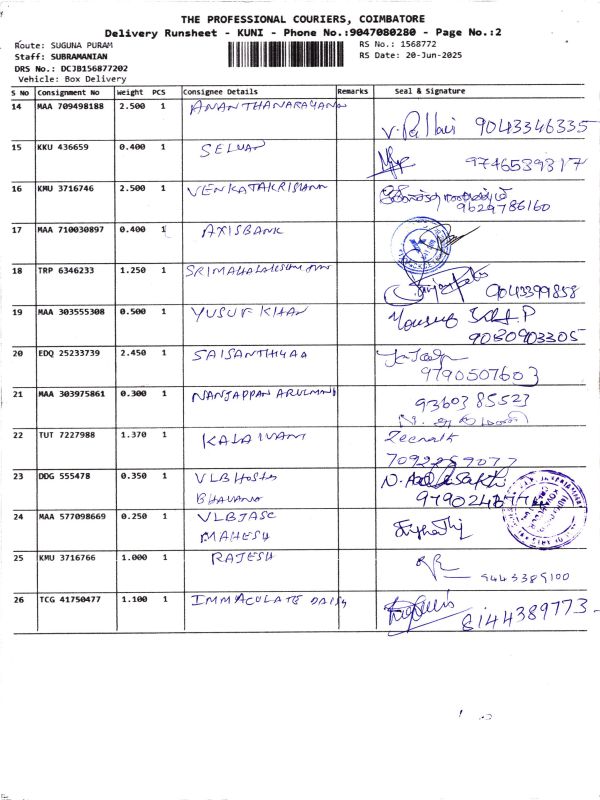 THE PROFESSIONAL COURIERS, COIMBATORE
Delivery Runsheet - KUNI - Phone No.:9047080280 - Page No.:2
Route: SUGUNA PURAM
RS No.: 1568772
Staff: SUBRAMANIAN
RS Date: 20-Jun-2025
DRS No.: DCJB156877202
Vehicle: Box Delivery
S No Consignment No Weight PCS Consignee Details Remarks Seal & Signature
14 MAA 709498188 2.500 1 ANANTHANARAYANA
9043346335
15 KKU 436659 0.400 1 SELVAN
9746539317
16 KMU 3716746 2.500 1 VENKATAKRISHNA
9629786160
17 MAA 710030897 0.400 1 AXISBANK
18 TRP 6346233 1.250 1
9043399858
19 MAA 303555308 0.500 1 YUSUF KHAN
9030903305
20 EDQ 25233739 2.450 1
9790507603
21 MAA 303975861 0.300 1 NANJAPPAN 9360385523
22 TUT 7227988 1.370 1 KALAIVANI Zeenath
7092259077
23 DDG 555478 0.350 1 VLB Hostes
BHAVANA
24 MAA 577098669 0.250 1 VLBJASC
MAHESH
25 KMU 3716766 1.000 1 RAJESH
9443389100
26 TCG 41750477 1.100 1 IMMACULATE DAISY
8144389773